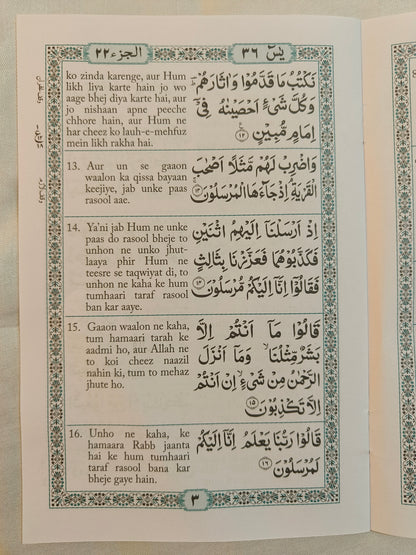 الجزء ٢٢
يٰسٓ ٣٦
ko zinda karenge, aur Hum
likh liya karte hain jo wo
aage bhej diya karte hai, aur
jo nishaan apne peeche
chhore hain, aur Hum ne
har cheez ko lauh-e-mehfuz
mein likh rakha hai.
نَكْتُبُ مَا قَدَّمُوْا وَاٰثَارَهُمْ ؕ
وَكُلَّ شَیْءٍ اَحْصَیْنٰهُ فِیْۤ
اِمَامٍ مُّبِیْنٍ ۟﴿۱۲﴾
13. Aur un se gaaon
waalon ka qissa bayaan
keejiye, jab unke paas
rasool aae.
وَاضْرِبْ لَهُمْ مَّثَلًا اَصْحٰبَ
الْقَرْیَةِ ۘ اِذْ جَآءَهَا الْمُرْسَلُوْنَ ﴿۱۳﴾
14. Ya'ni jab Hum ne unke
paas do rasool bheje to
unhon ne unko jhut-
laaya phir Hum ne
teesre se taqwiyat di, to
unhon ne kaha ke hum
tumhaari taraf rasool
ban kar aaye.
اِذْ اَرْسَلْنَاۤ اِلَیْهِمُ اثْنَیْنِ
فَكَذَّبُوْهُمَا فَعَزَّزْنَا بِثَالِثٍ
فَقَالُوْۤا اِنَّاۤ اِلَیْكُمْ مُّرْسَلُوْنَ ﴿۱۴﴾
15. Gaaon waalon ne kaha,
tum hamaari tarah ke
aadmi ho, aur Allah ne
to koi cheez naazil
nahin ki, tum to mehaz
jhute ho.
قَالُوْا مَاۤ اَنْتُمْ اِلَّا
بَشَرٌ مِّثْلُنَا ۙ وَمَاۤ اَنْزَلَ
الرَّحْمٰنُ مِنْ شَیْءٍ ۙ اِنْ اَنْتُمْ
اِلَّا تَكْذِبُوْنَ ﴿۱۵﴾
16. Unho ne kaha, ke
hamaara Rabb jaanta
hai ke hum tumhaari
taraf rasool bana kar
bheje gaye hain.
قَالُوْا رَبُّنَا یَعْلَمُ اِنَّاۤ اِلَیْكُمْ
لَمُرْسَلُوْنَ ﴿۱۶﴾
٣